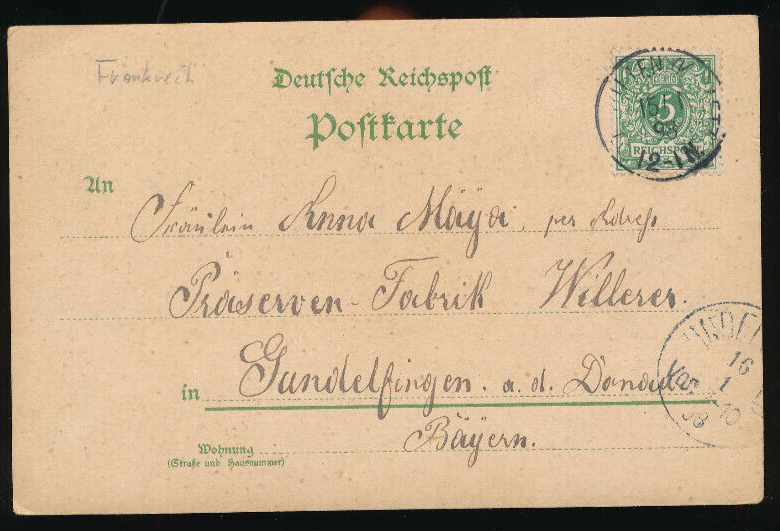 Frankreich
Deutsche Reichspost
Postkarte
5
REICHSPOST
15 1
98
12-1N.
An
Fräulein Anna Mayr, per Adreß
Präserven-Fabrik Willerer.
in Gundelfingen. a. d. Donau
Bayern.
16
1
98
Wohnung
(Straße und Hausnummer)